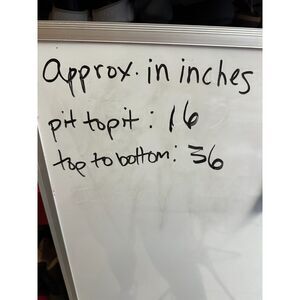 approx. in inches
pit to pit : 16
top to bottom : 36